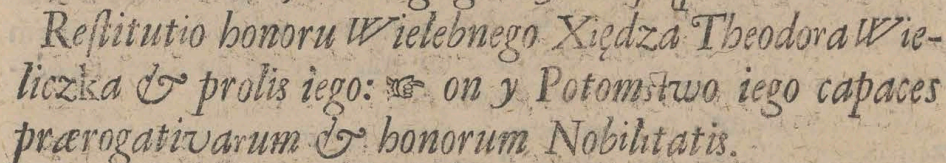 Reſtitutio honoru Wielebnego Xiędza Theodora Wie-
liczka & prolis iego: ☞ on y Potomstwo iego capaces
prærogativarum & honorum Nobilitatis.